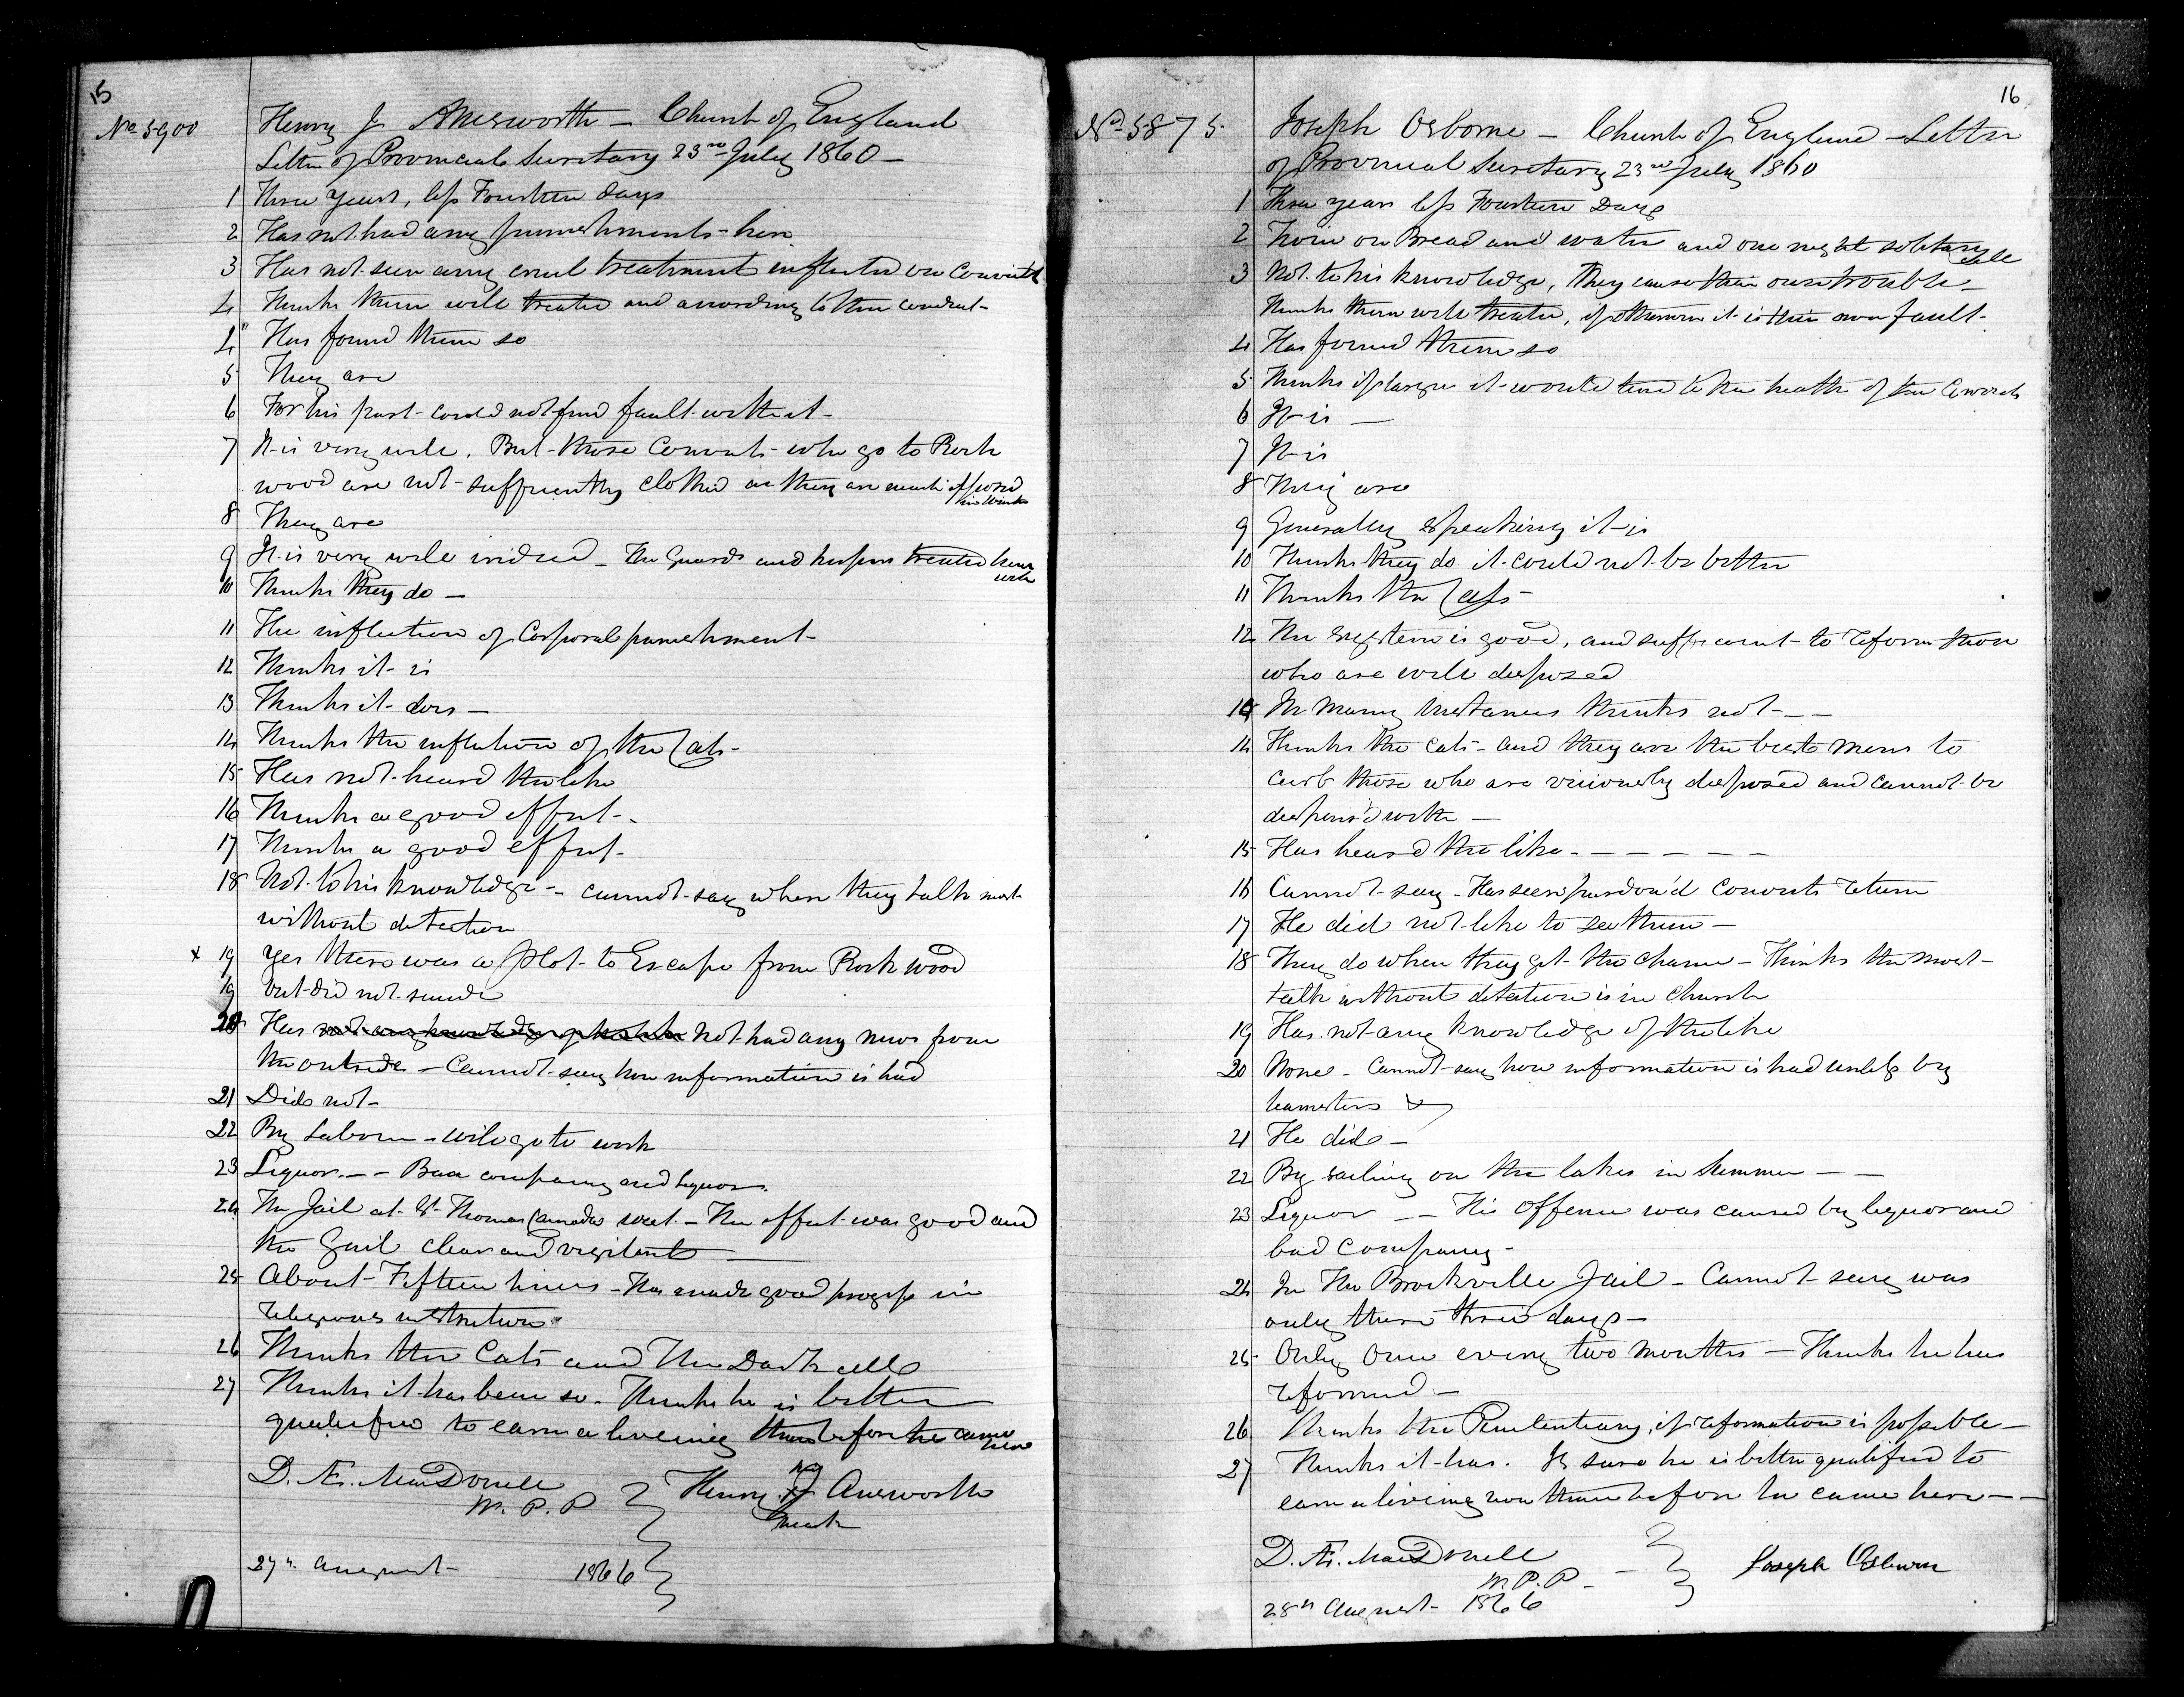 15
No 5900
Henry J Answorth - Church of England
Letter of Provincial Secretary 23rd July 1860 -
1 Three years, less Fourteen days
2 Has not had any punishments - here
3 Has not seen any cruel treatment inflicted on Convicts
4 Thinks them well treated and according to their conduct -
4" Has found them so
5 They are
6 For his part - could not find fault with it -
7 It is very well. But those Convicts who go to Rock
wood are not sufficiently clothed as they are much exposed
in Winter
8 They are
9 It is very well indeed - The Guards and keepers treated him
well
10 Thinks they do -
11 The infliction of Corporal punishment -
12 Thinks it is
13 Thinks it does -
14 Thinks the infliction of the Cats -
15 Has not heard the like
16 Thinks a good effect -
17 Thinks a good effect -
18 Not to his knowledge - cannot say where they talk most
without detection
x 19 Yes there was a plot to Escape from Rockwood
19 but did not succeed
20 Has not any knowledge of Not had any news from
the outside - Cannot say how information is had
21 Did not -
22 By Labour - will go to work
23 Liquor - - Bad company and liquor.
24 The Jail at St Thomas Canada West - The effect was good and
the Gaol clean and vigilant
25 About Fifteen times - Has made good progress in
religious instruction
26 Thinks the Cats and The Dark cell
27 Thinks it has been so. Thinks he is better
qualified to earn a liveing than before he came
here
D. Æ. MacDonell
W. P. P
Henry J Answorth
his
mark
27th August 1866
16
No 5875.
Joseph Osborne - Church of England - Letter
of Provincial Secretary 23rd July 1860
1 Three years less Fourteen Days
2 Twice on Bread and water and one night solitary cell
3 Not to his knowledge, they cause their own trouble -
thinks them well treated, if otherwise it is their own fault -
4 Has found them so
5 Thinks if larger it would tend to the health of the Convicts
6 It is -
7 It is
8 They are
9 Generally speaking it is
10 Thinks they do it could not be better
11 Thinks the Cats -
12 The system is good, and sufficient to reform those
who are well disposed
14 In many instances thinks not - -
14 Thinks the cats - and they are the best means to
curb those who are viciously disposed and cannot be
dispens'd with -
15 Has heard the like - - - - - -
16 Cannot say - Has seen pardon'd Convicts return
17 He did not like to see them -
18 They do when they get the chance - Thinks the most
talk without detection is in Church
19 Has not any knowledge of the like
20 None - Cannot say how information is had unless by
teamsters
21 He did -
22 By sailing on the lakes in Summer - -
23 Liquor - - His Offence was caused by liquor and
bad company -
24 In The Brockville Jail - Cannot say was
only there three days -
25 Only Once every two months - Thinks he has
reformed -
26 Thinks the Penitentiary, if reformation is possible -
27 Thinks it has. Is sure he is better qualified to
earn a living now than before he came here - -
D. Æ. MacDonell
W. P. P -
Joseph Osburn
28th August - 1866